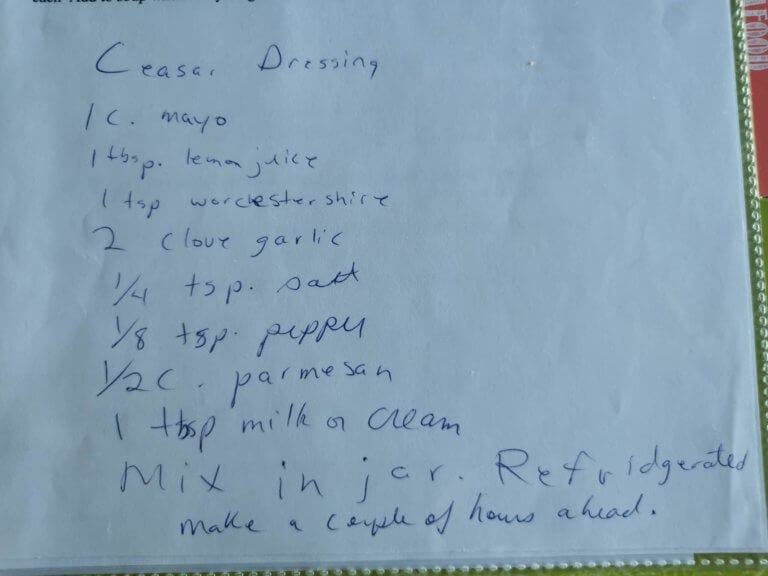 Ceasar Dressing
1 c. mayo
1 tbsp. lemon juice
1 tsp worchestershire
2 clove garlic
1/4 tsp. salt
1/8 tsp. pepper
1/2 c. parmesan
1 tbsp milk or cream
Mix in jar. Refridgerated
make a couple of hours ahead.